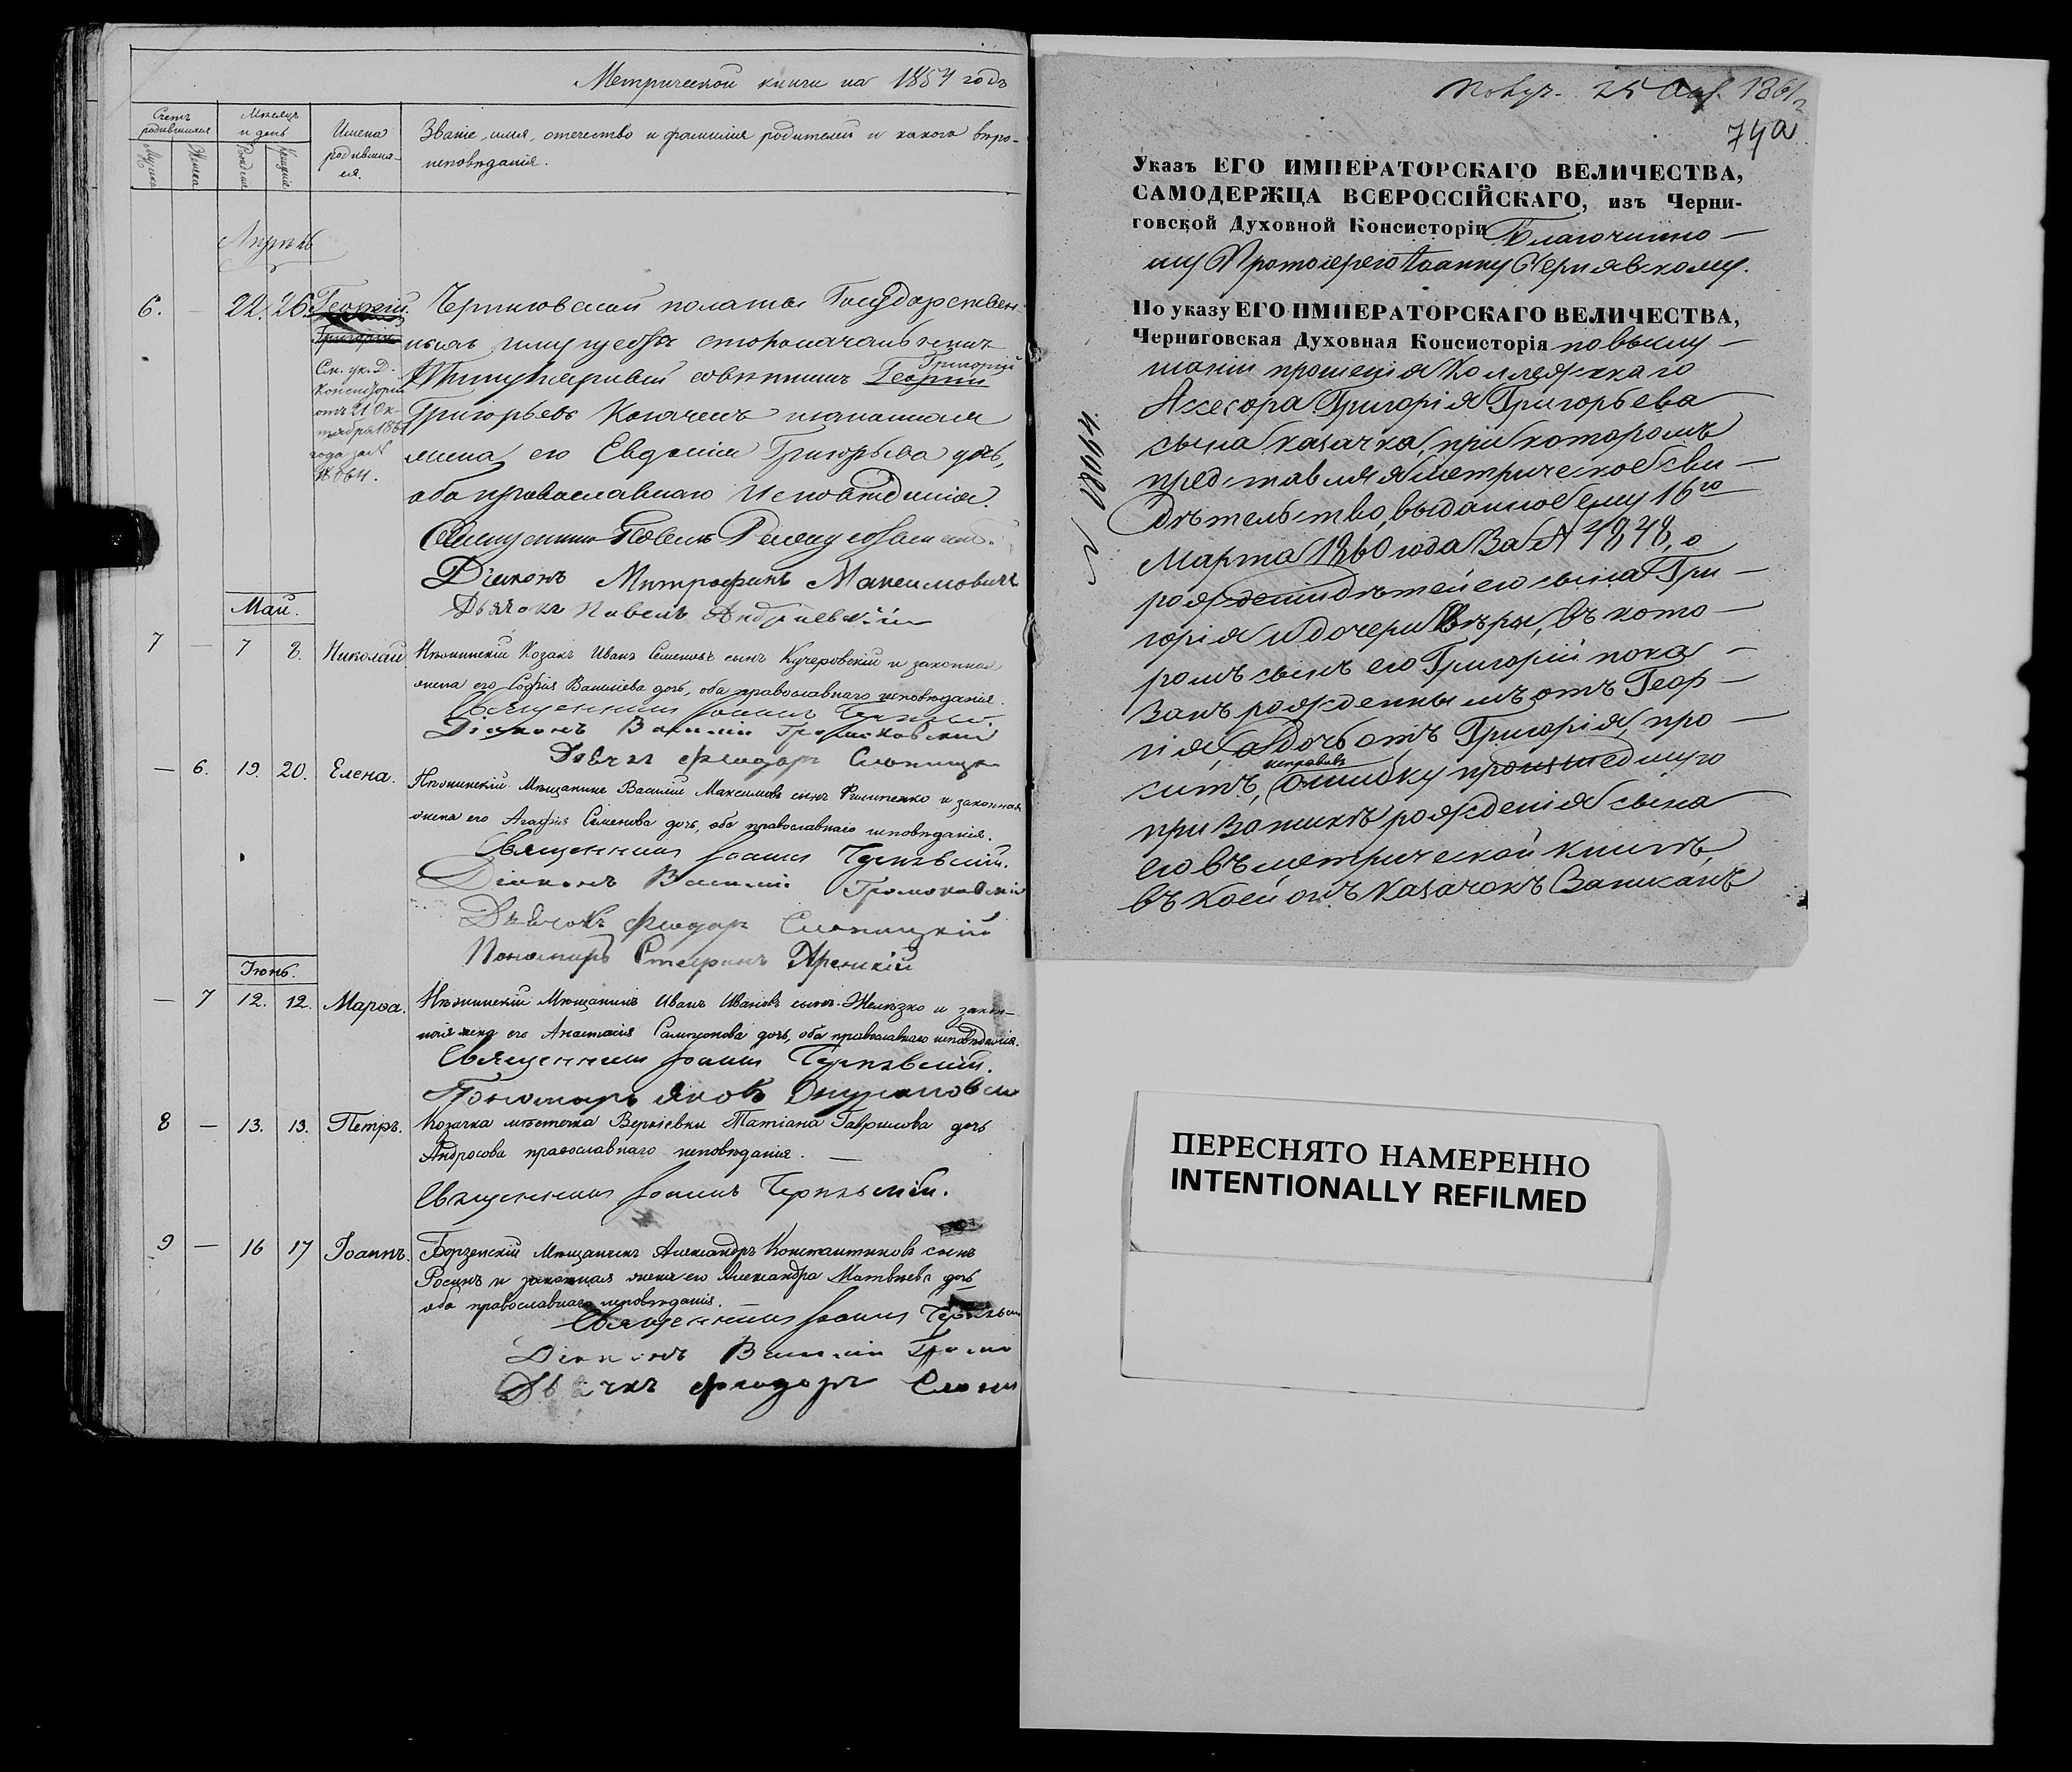 Метрической книги на 1857 годъ
Счетъ родившихся
Мѣсяцъ и день
Имена родивших-ся.
Званіе, имя, отечество и фамилія родителей и какого вѣро-
исповѣданія.
Мужеска
Женска
Рожденія
Крещенія
Апрѣль
6. — 22. 26. Георгій. Черниговской полаты Государствен-
Григорій
ныхъ имуществъ
См. ук. Д.
Консисторіи
отъ 21 Ок-
тября 1861
года за №
Григорій
совѣтникъ Георгій
Григорьевъ
жена его Евдокія Григорьева дочь,
оба православнаго исповѣданія.
Священникъ Павелъ
Діаконъ Митрофанъ Максимовичъ
Дьячокъ Павелъ Андріевскій
Май.
7 — 7 8. Николай Нѣжинскій Козакъ Иванъ Семеновъ сынъ Кучеровскій и законная
жена его Софія Василіева дочь, оба православнаго исповѣданія.
Священникъ Іоаннъ Чернявскій.
Діаконъ Василій Громаковскій
Дьячокъ Феодоръ
— 6. 19. 20. Елена. Нѣжинскій Мѣщанинъ Василій Максимовъ сынъ Филипенко и законная
жена его Агафія Семенова дочь, оба православнаго исповѣданія.
Священникъ Іоаннъ Чернявскій.
Діаконъ Василій
Дьячокъ Феодоръ
Пономарь Стефанъ
Іюнь.
— 7 12. 12. Марѳа. Нѣжинскій Мѣщанинъ Иванъ Ивановъ сынъ Желѣзко и закон-
ная жена его Анастасія Сампсонова дочь, оба православнаго исповѣданія.
Священникъ Іоаннъ Чернявскій.
Пономарь Яковъ
8 — 13. 13. Петръ. Козачка мѣстечка Веркіевки Татіана Гаврилова дочь
Андросова православнаго исповѣданія. —
Священникъ Іоаннъ Чернявскій.
9 — 16 17 Іоаннъ. Борзенскій Мѣщанинъ Александръ Константиновъ сынъ
Росинъ и законная жена его Александра Матвѣева дочь
оба православнаго исповѣданія. —
Священникъ Іоаннъ
Діаконъ Василій
Дьячокъ Феодоръ
Получ. 25 1861
74а.
Указъ ЕГО ИМПЕРАТОРСКАГО ВЕЛИЧЕСТВА,
САМОДЕРЖЦА ВСЕРОССІЙСКАГО, изъ Черни-
говской Духовной Консисторіи Благочинно-
му Протоіерею Іоанну Чернявскому.
По указу ЕГО ИМПЕРАТОРСКАГО ВЕЛИЧЕСТВА,
Черниговская Духовная Консисторія по выслу-
шаніи прошенія Коллежскаго
Ассесора Григорія Григорьева
сына Казачка, при которомъ
представляя метрическое сви-
дѣтельство, выданное ему 16го
Марта 1860 года за № 4848, о
рожденіи дѣтей его сына Гри-
горія и дочери Вѣры, въ кото-
ромъ сынъ его Григорій пока-
занъ рожденнымъ отъ Геор-
гія, а дочь отъ Григорія, про-
исправить
ситъ, ошибку происшедшую
при запискѣ рожденія сына
его въ метрической книгѣ,
въ коей онъ Казачокъ записанъ
ПЕРЕСНЯТО НАМЕРЕННО
INTENTIONALLY REFILMED